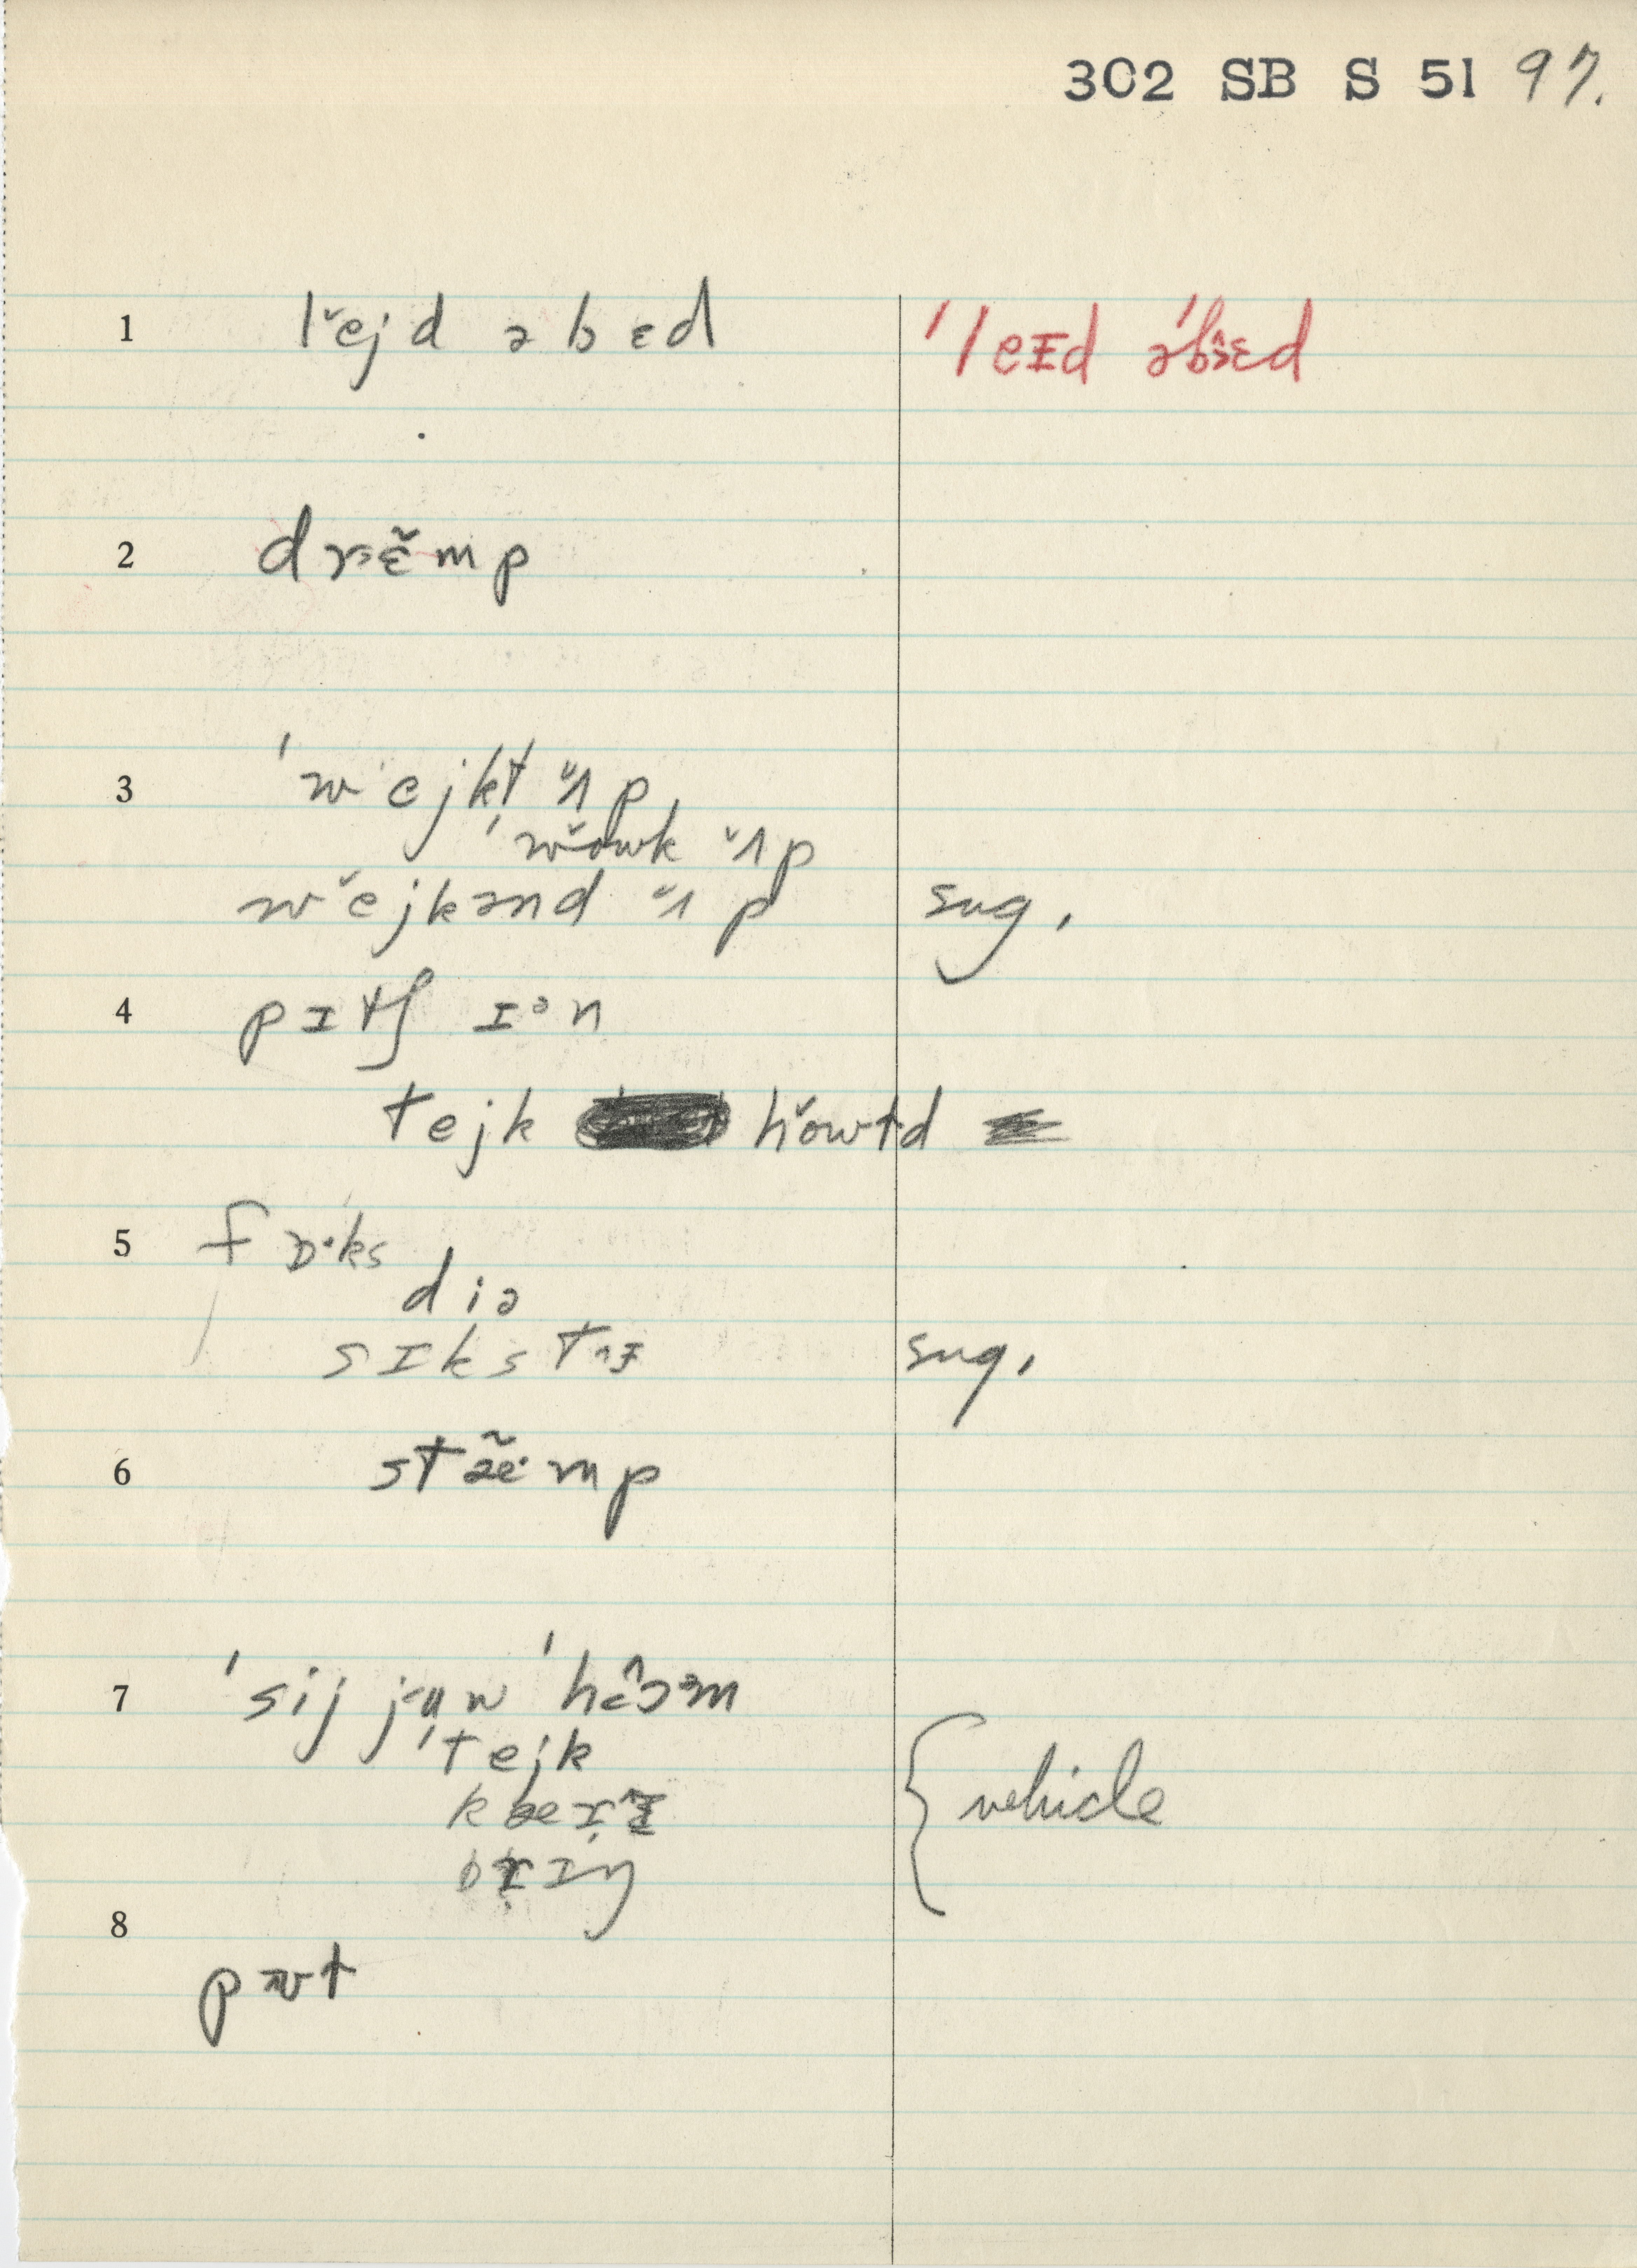 302 SB S 51 97.
1 lĕjd ə b ɛd ˈleɪd əˈbɛd
2 drɛ̃mp
3 ˈwejkt ʌ̆p,
ˈwŏwk ʌ̆p
wĕjkənd ʌ̆p sug.
4 pɪtʃ ɪən
tejk hŏwtd
5 fɒ·ks
diə
sɪkstɪ sug.
6 stæ̃·mp
7 ˈsij juw ˈhəm
ˈtejk { vehicle
8